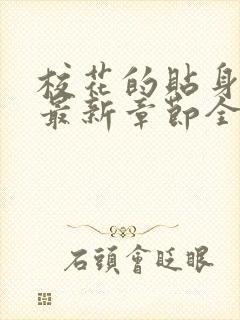 校花的貼身
最新章節全
石頭會眨眼